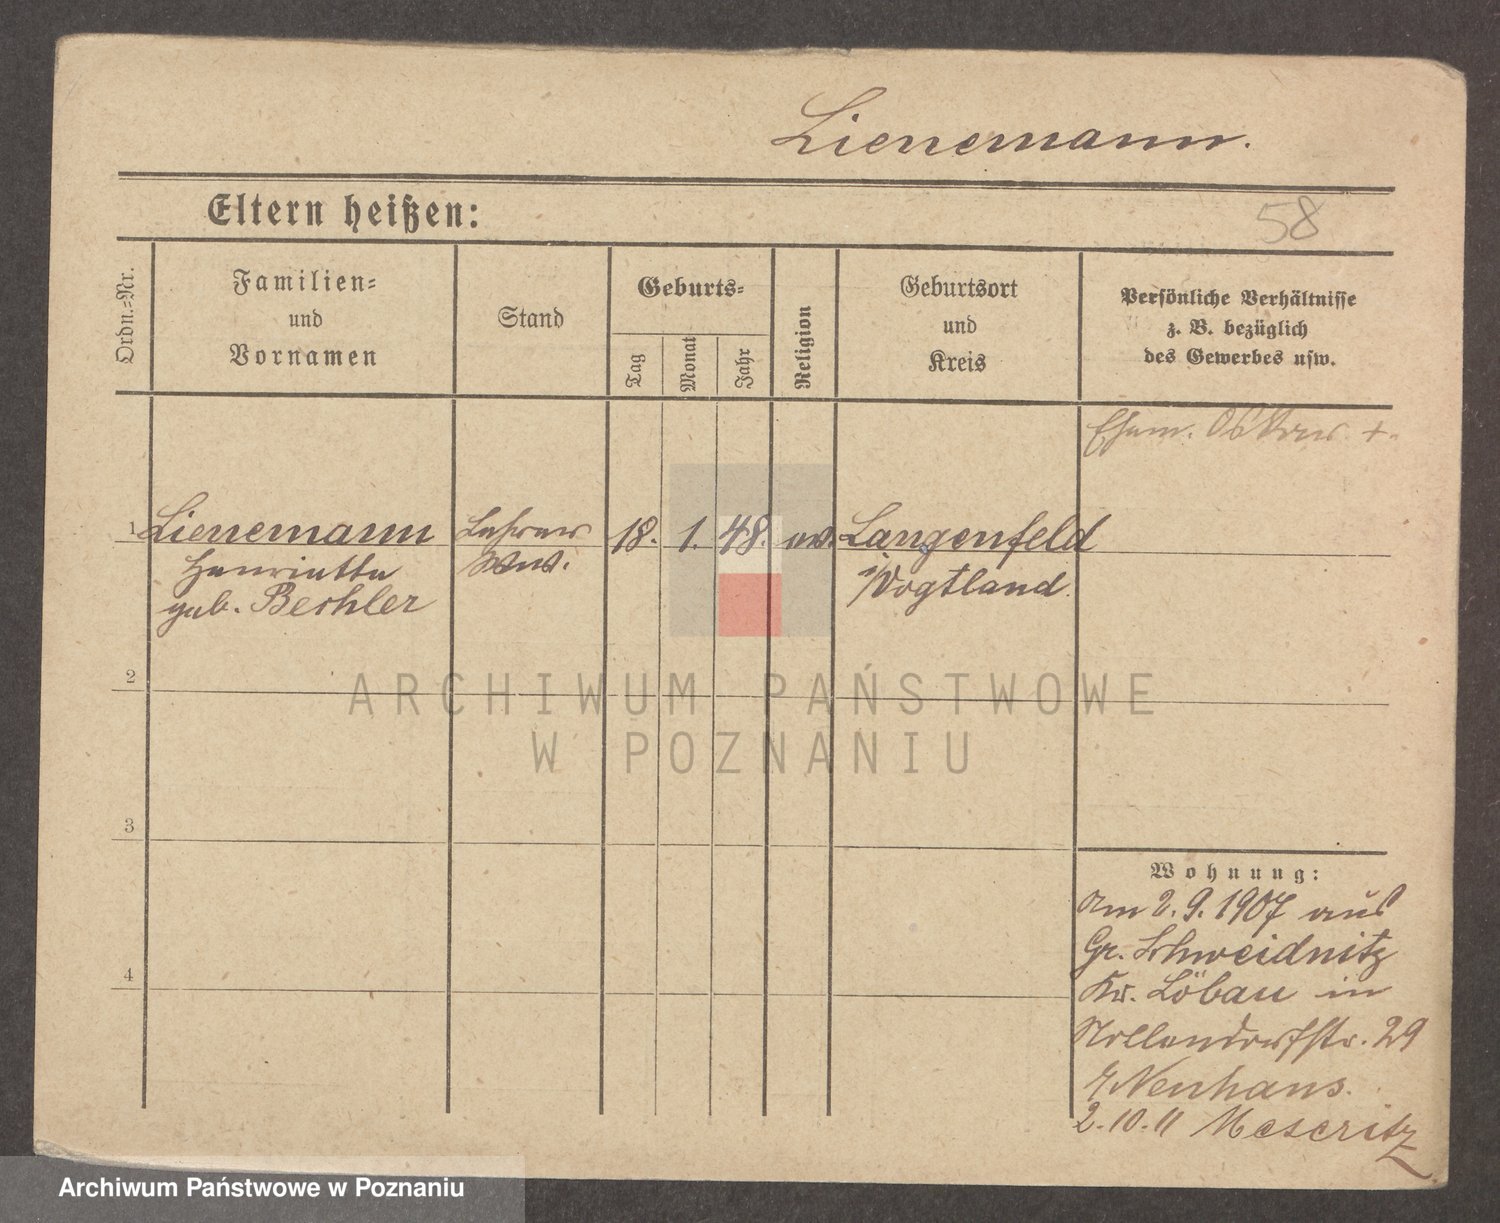 Lienemann.
Eltern heißen:
58
Ordn.=Nr.
Familien=
und
Vornamen
Stand
Geburts=
Tag
Monat
Jahr
Religion
Geburtsort
und
Kreis
Persönliche Verhältnisse
z. B. bezüglich
des Gewerbes usw.
Ehem. Oskar +.
1 Lienemann Lehrer 18. 1. 48. ev. Langenfeld
Henriette Wwe. i/Vogtland.
geb. Bechler
2
3
4
Wohnung:
Am 2.9.1907 aus
Gr. Schweidnitz
Kr. Löbau in
Nollendorfstr. 29
b/Neuhaus.
2.10.11 Meseritz
ARCHIWUM PAŃSTWOWE
W POZNANIU
Archiwum Państwowe w Poznaniu